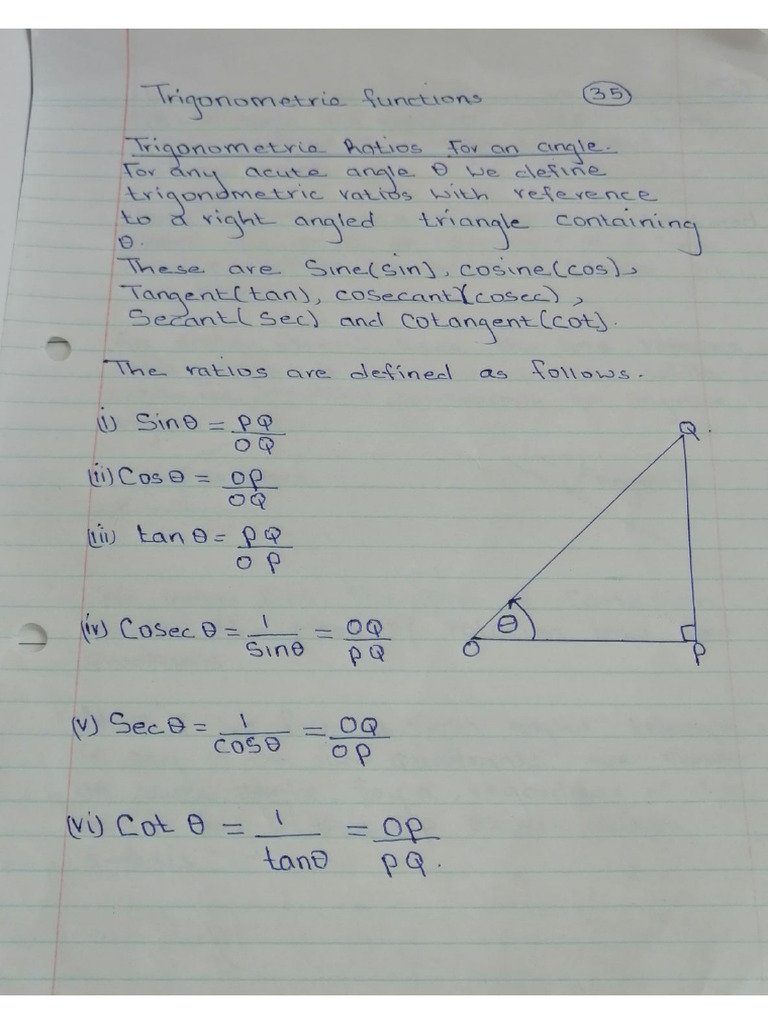 Trigonometric functions (35)
Trigonometric Ratios for an angle.
For any acute angle θ we define
trigonometric ratios with reference
to a right angled triangle containing
θ.
These are Sine(sin), cosine(cos),
Tangent(tan), cosecant)(cosec),
Secant(sec) and cotangent(cot).
The ratios are defined as follows.
(i) Sinθ = PQ/OQ
(ii) Cosθ = OP/OQ
(iii) tanθ = PQ/OP
(iv) Cosecθ = 1/Sinθ = OQ/PQ
(v) Secθ = 1/cosθ = OQ/OP
(vi) Cot θ = 1/tanθ = OP/PQ.
Q
θ
O
P